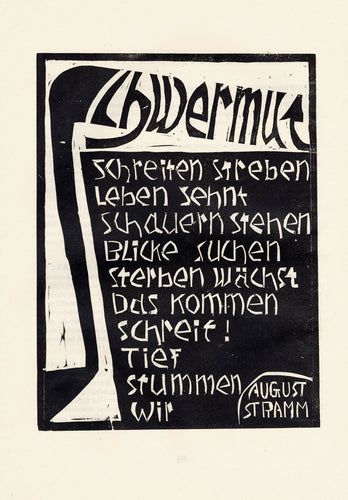 Schwermut
Schreiten Streben
Leben sehnt
Schauern Stehen
Blicke suchen
Sterben wächst
Das Kommen
Schreit!
Tief
Stummen
Wir
AUGUST
STRAMM